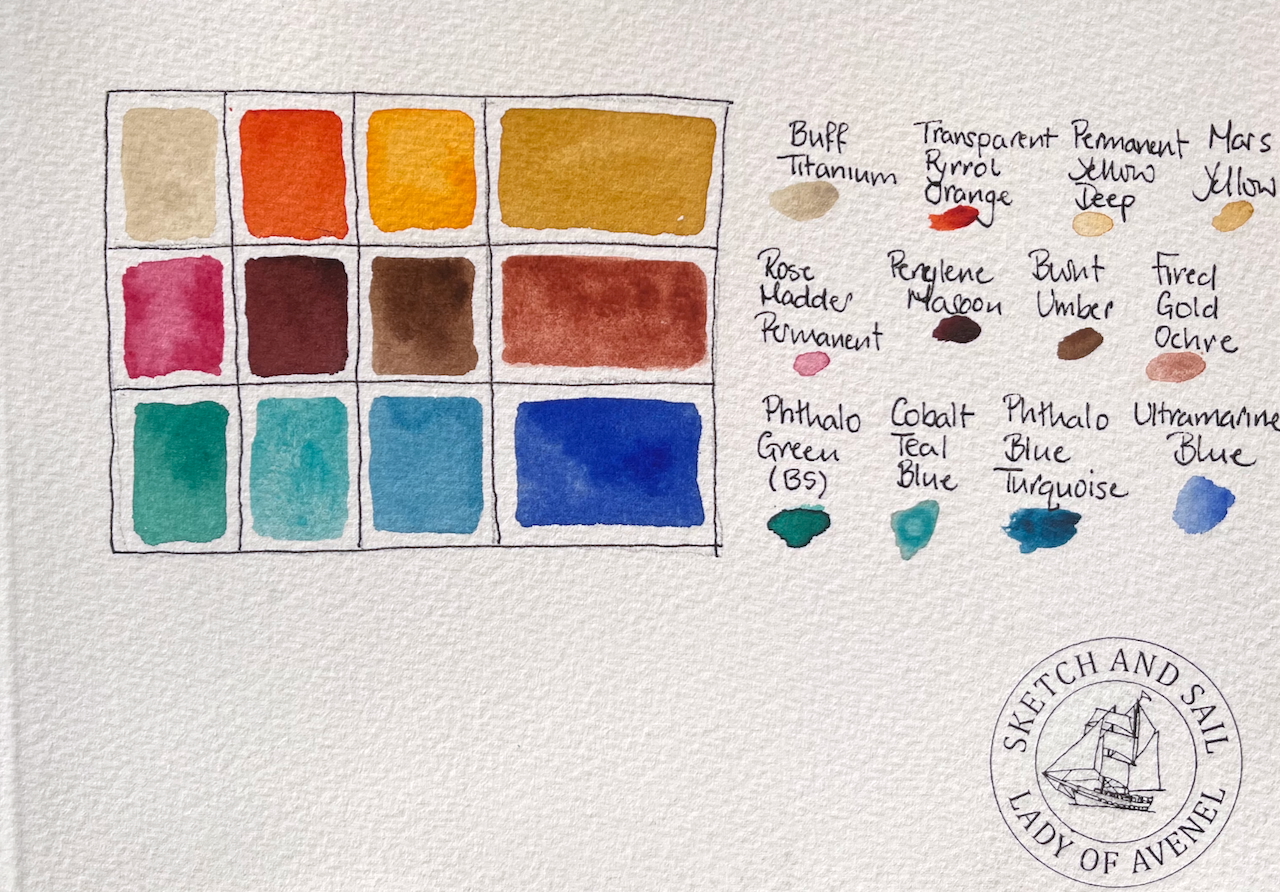 Buff
Titanium
Transparent
Pyrrol
Orange
Permanent
Yellow
Deep
Mars
Yellow
Rose
Madder
Permanent
Perylene
Maroon
Burnt
Umber
Fired
Gold
Ochre
Phthalo
Green
(BS)
Cobalt
Teal
Blue
Phthalo
Blue
Turquoise
Ultramarine
Blue
SKETCH AND SAIL
LADY OF AVENEL